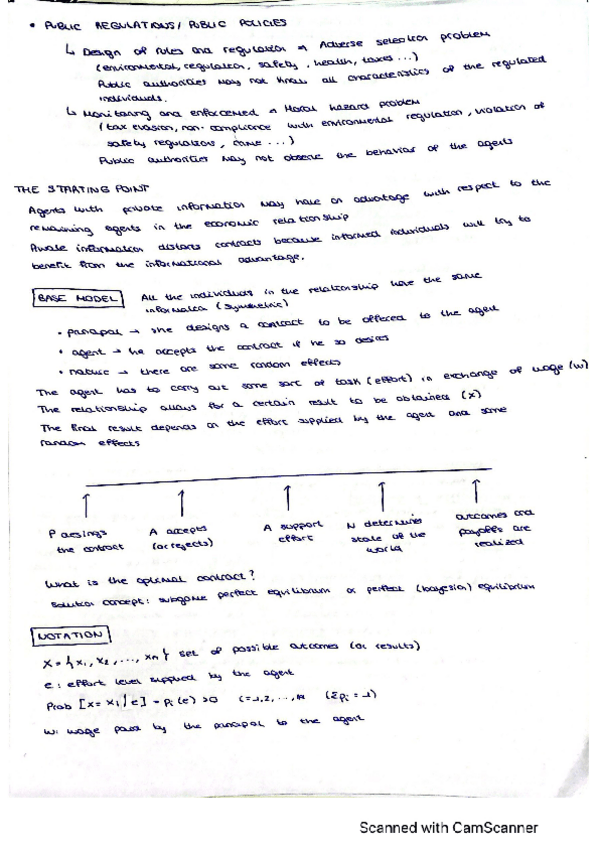 • PUBLIC REGULATIONS / PUBLIC POLICIES
↳ Design of rules and regulation → Adverse selection problem
(environmental, regulation, safety, health, taxes ...)
Public authorities may not know all characteristics of the regulated
individuals.
↳ Monitoring and enforcement → Moral hazard problem
(tax evasion, non-compliance with environmental regulation, violation of
safety regulations, crime ...)
Public authorities may not observe the behavior of the agents
THE STRATING POINT
Agents with private information may have an advantage with respect to the
remaining agents in the economic relationship
Private information distorts contracts because informed individuals will try to
benefit from the informational advantage.
BASE MODEL All the individuals in the relationship have the same
information (symmetric)
• principal → she designs a contract to be offered to the agent
• agent → he accepts the contract if he so desires
• nature → there are some random effects
The agent has to carry out some sort of task (effort) in exchange of wage (w)
The relationship allows for a certain result to be obtained (x)
The final result depends on the effort supplied by the agent and some
random effects
P designs A accepts A support N determines outcomes and
the contract (or rejects) effort state of the payoffs are
world realized
What is the optimal contract?
Solution concept: subgame perfect equilibrium or perfect (bayesian) equilibrium
NOTATION
X = { x1, x2, ..., xn } set of possible outcomes (or results)
e: effort level supplied by the agent
Prob [x = xi | e] = pi (e) > 0 i=1,2,...,n (Σpi = 1)
w: wage paid by the principal to the agent
Scanned with CamScanner